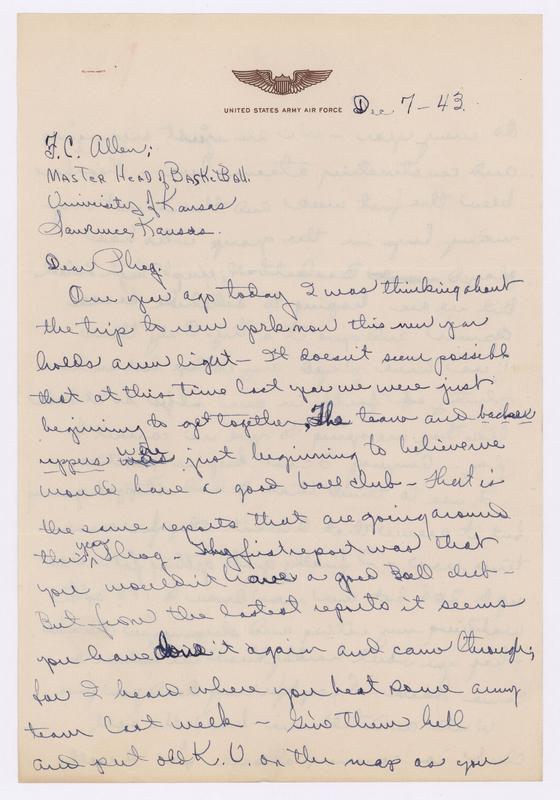 UNITED STATES ARMY AIR FORCE
Dec 7-43.
F.C. Allen;
Master Head of BasketBall.
University of Kansas
Lawrence, Kansas.
Dear Phog:
One year ago today I was thinking about
the trip to new york now this new year
holds a new light - It doesn't seem possible
that at this time last year we were just
beginning to get together, The team and backer
uppers were just beginning to believe we
would have a good ball club - That is
the same reports that are going around
this year, Phog - The first report was that
you wouldn't have a good Ball club -
But from the lastest reports it seems
you have done it again and came through;
for I heard where you beat some army
team last week - Give them hell
and put old K.U. on the map as you